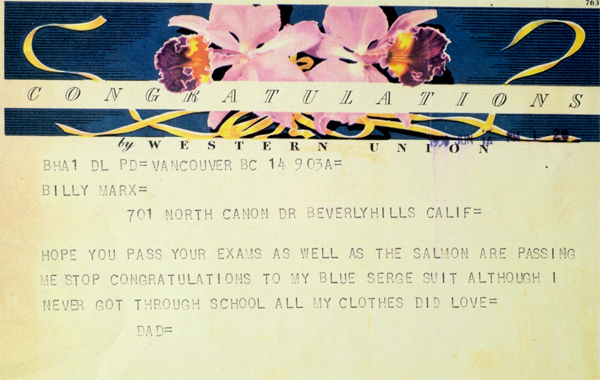 763
CONGRATULATIONS
by WESTERN UNION
BHA1 DL PD=VANCOUVER BC 14 903A=
BILLY MARX=
701 NORTH CANON DR BEVERLYHILLS CALIF=
HOPE YOU PASS YOUR EXAMS AS WELL AS THE SALMON ARE PASSING
ME STOP CONGRATULATIONS TO MY BLUE SERGE SUIT ALTHOUGH I
NEVER GOT THROUGH SCHOOL ALL MY CLOTHES DID LOVE=
DAD=